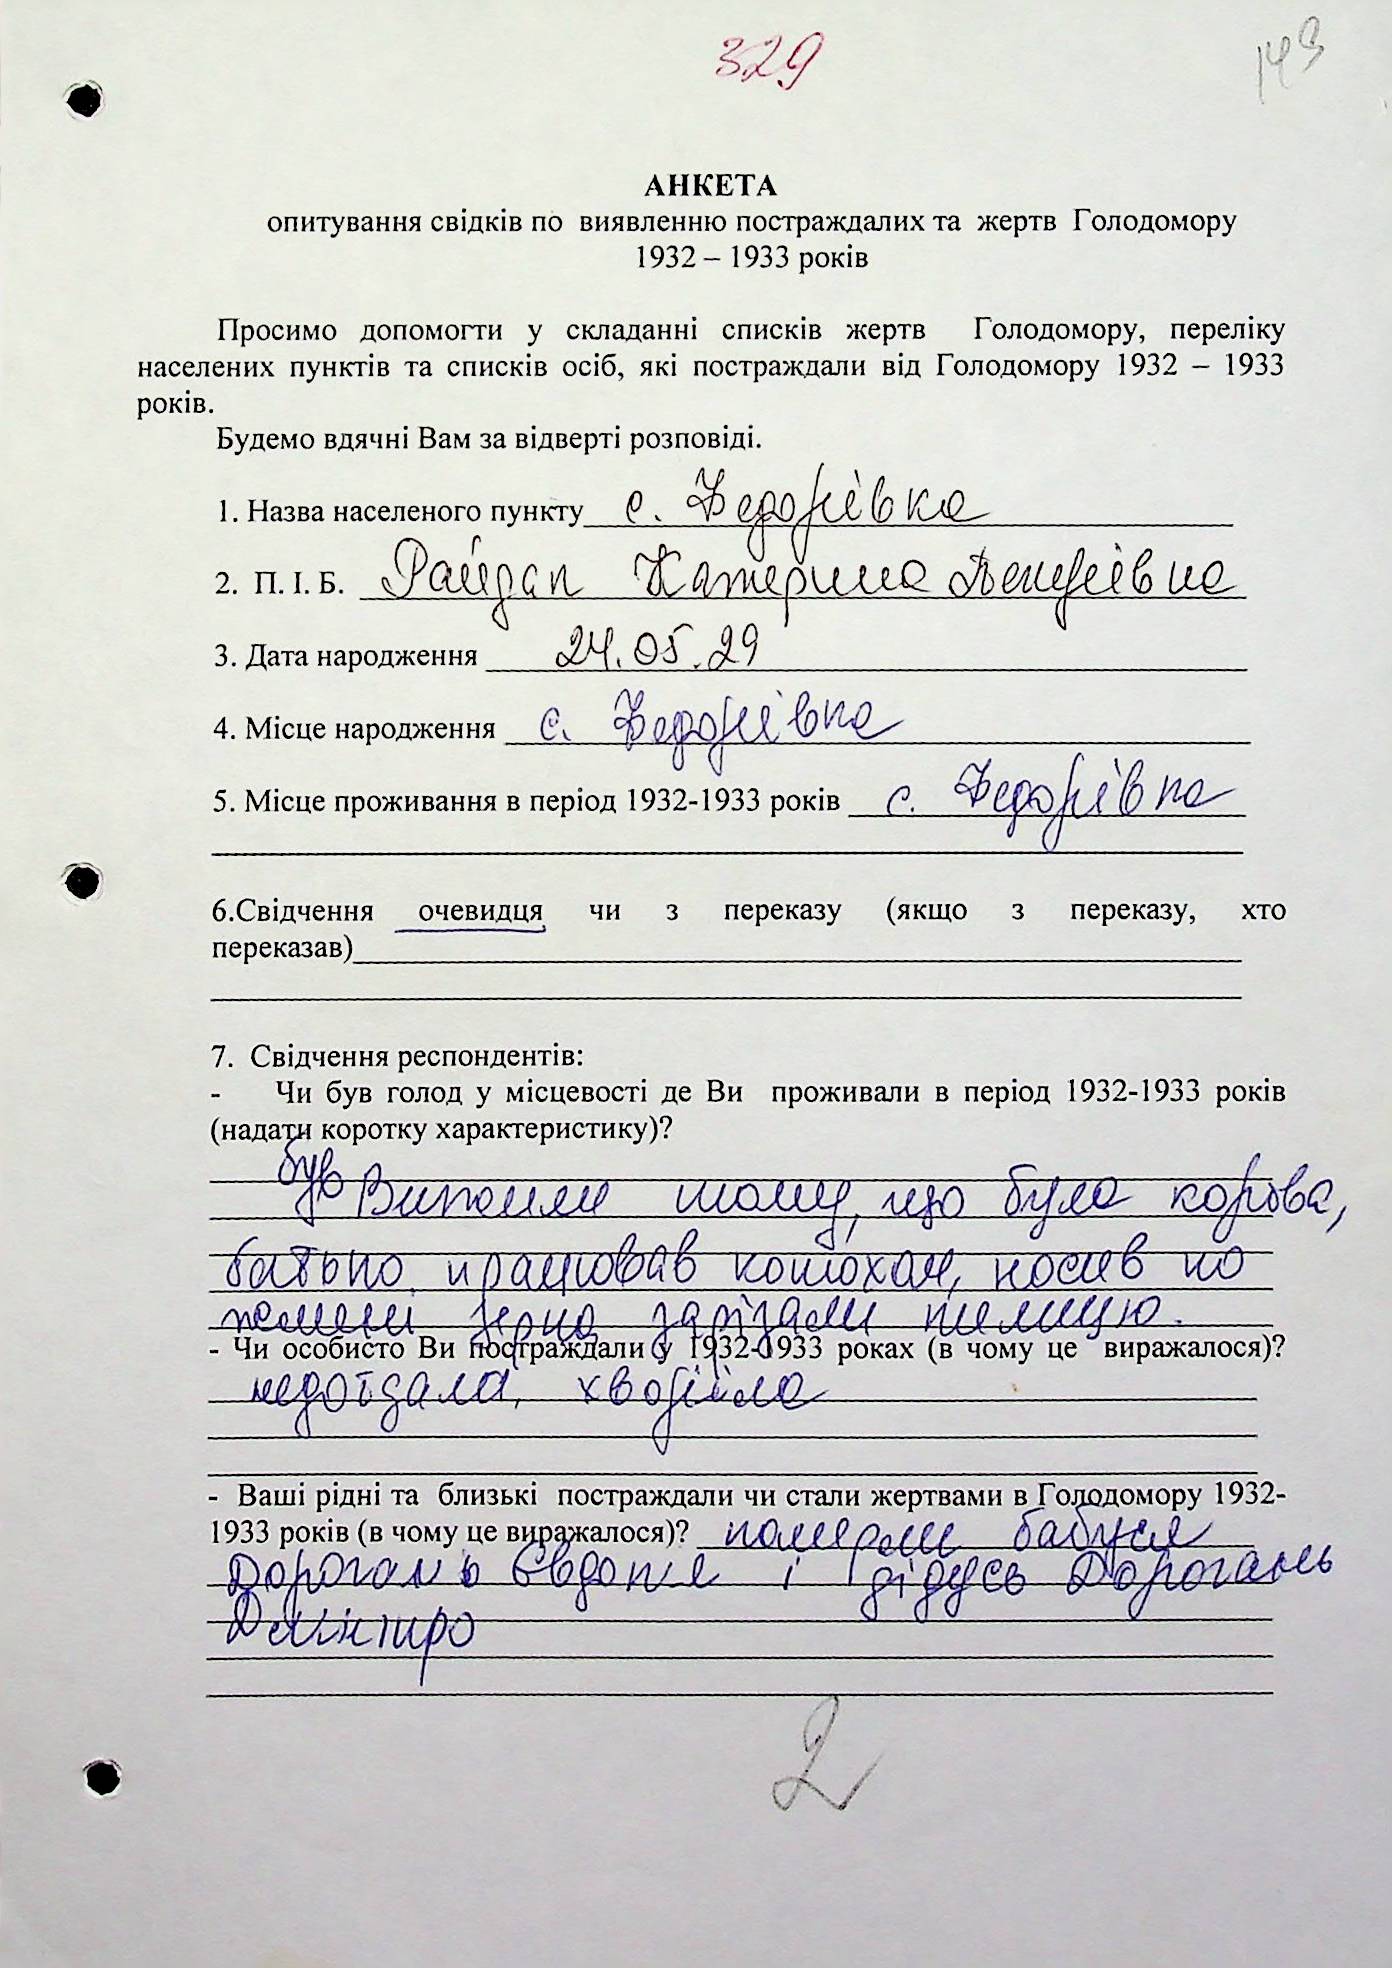 329
143
АНКЕТА
опитування свідків по виявленню постраждалих та жертв Голодомору
1932 – 1933 років
Просимо допомогти у складанні списків жертв Голодомору, переліку
населених пунктів та списків осіб, які постраждали від Голодомору 1932 – 1933
років.
Будемо вдячні Вам за відверті розповіді.
1. Назва населеного пункту с. Федоріївка
2. П. І. Б. Райдак Катерина
3. Дата народження 24.05.29
4. Місце народження с. Федоріївка
5. Місце проживання в період 1932-1933 років с. Федоріївка
6.Свідчення очевидця чи з переказу (якщо з переказу, хто
переказав)
7. Свідчення респондентів:
- Чи був голод у місцевості де Ви проживали в період 1932-1933 років
(надати коротку характеристику)?
був Вижили тому, що була корова,
батько працював конюхом, носив по
жмені зерно зарізали телицю.
- Чи особисто Ви постраждали у 1932-1933 роках (в чому це виражалося)?
недоїдала, хворіла
- Ваші рідні та близькі постраждали чи стали жертвами в Голодомору 1932-
1933 років (в чому це виражалося)? померли бабуся
Дорогань Євдокія і дідусь Дорогань
Дмитро
2